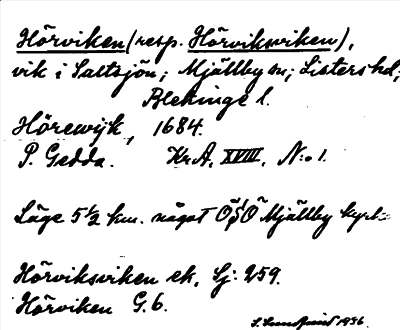 Hörviken (resp. Hörviksviken),
vik i Saltsjön; Mjällby sn; Listers hd;
Blekinge l.
Hörewijk, 1684.
P. Gedda. Kr.A. XVIII, N:o 1.
Läge 5 1/2 km. något Ö Mjällby kyrka
Hörviksviken ek. Sj: 259.
Hörviken G. 6.
1936.